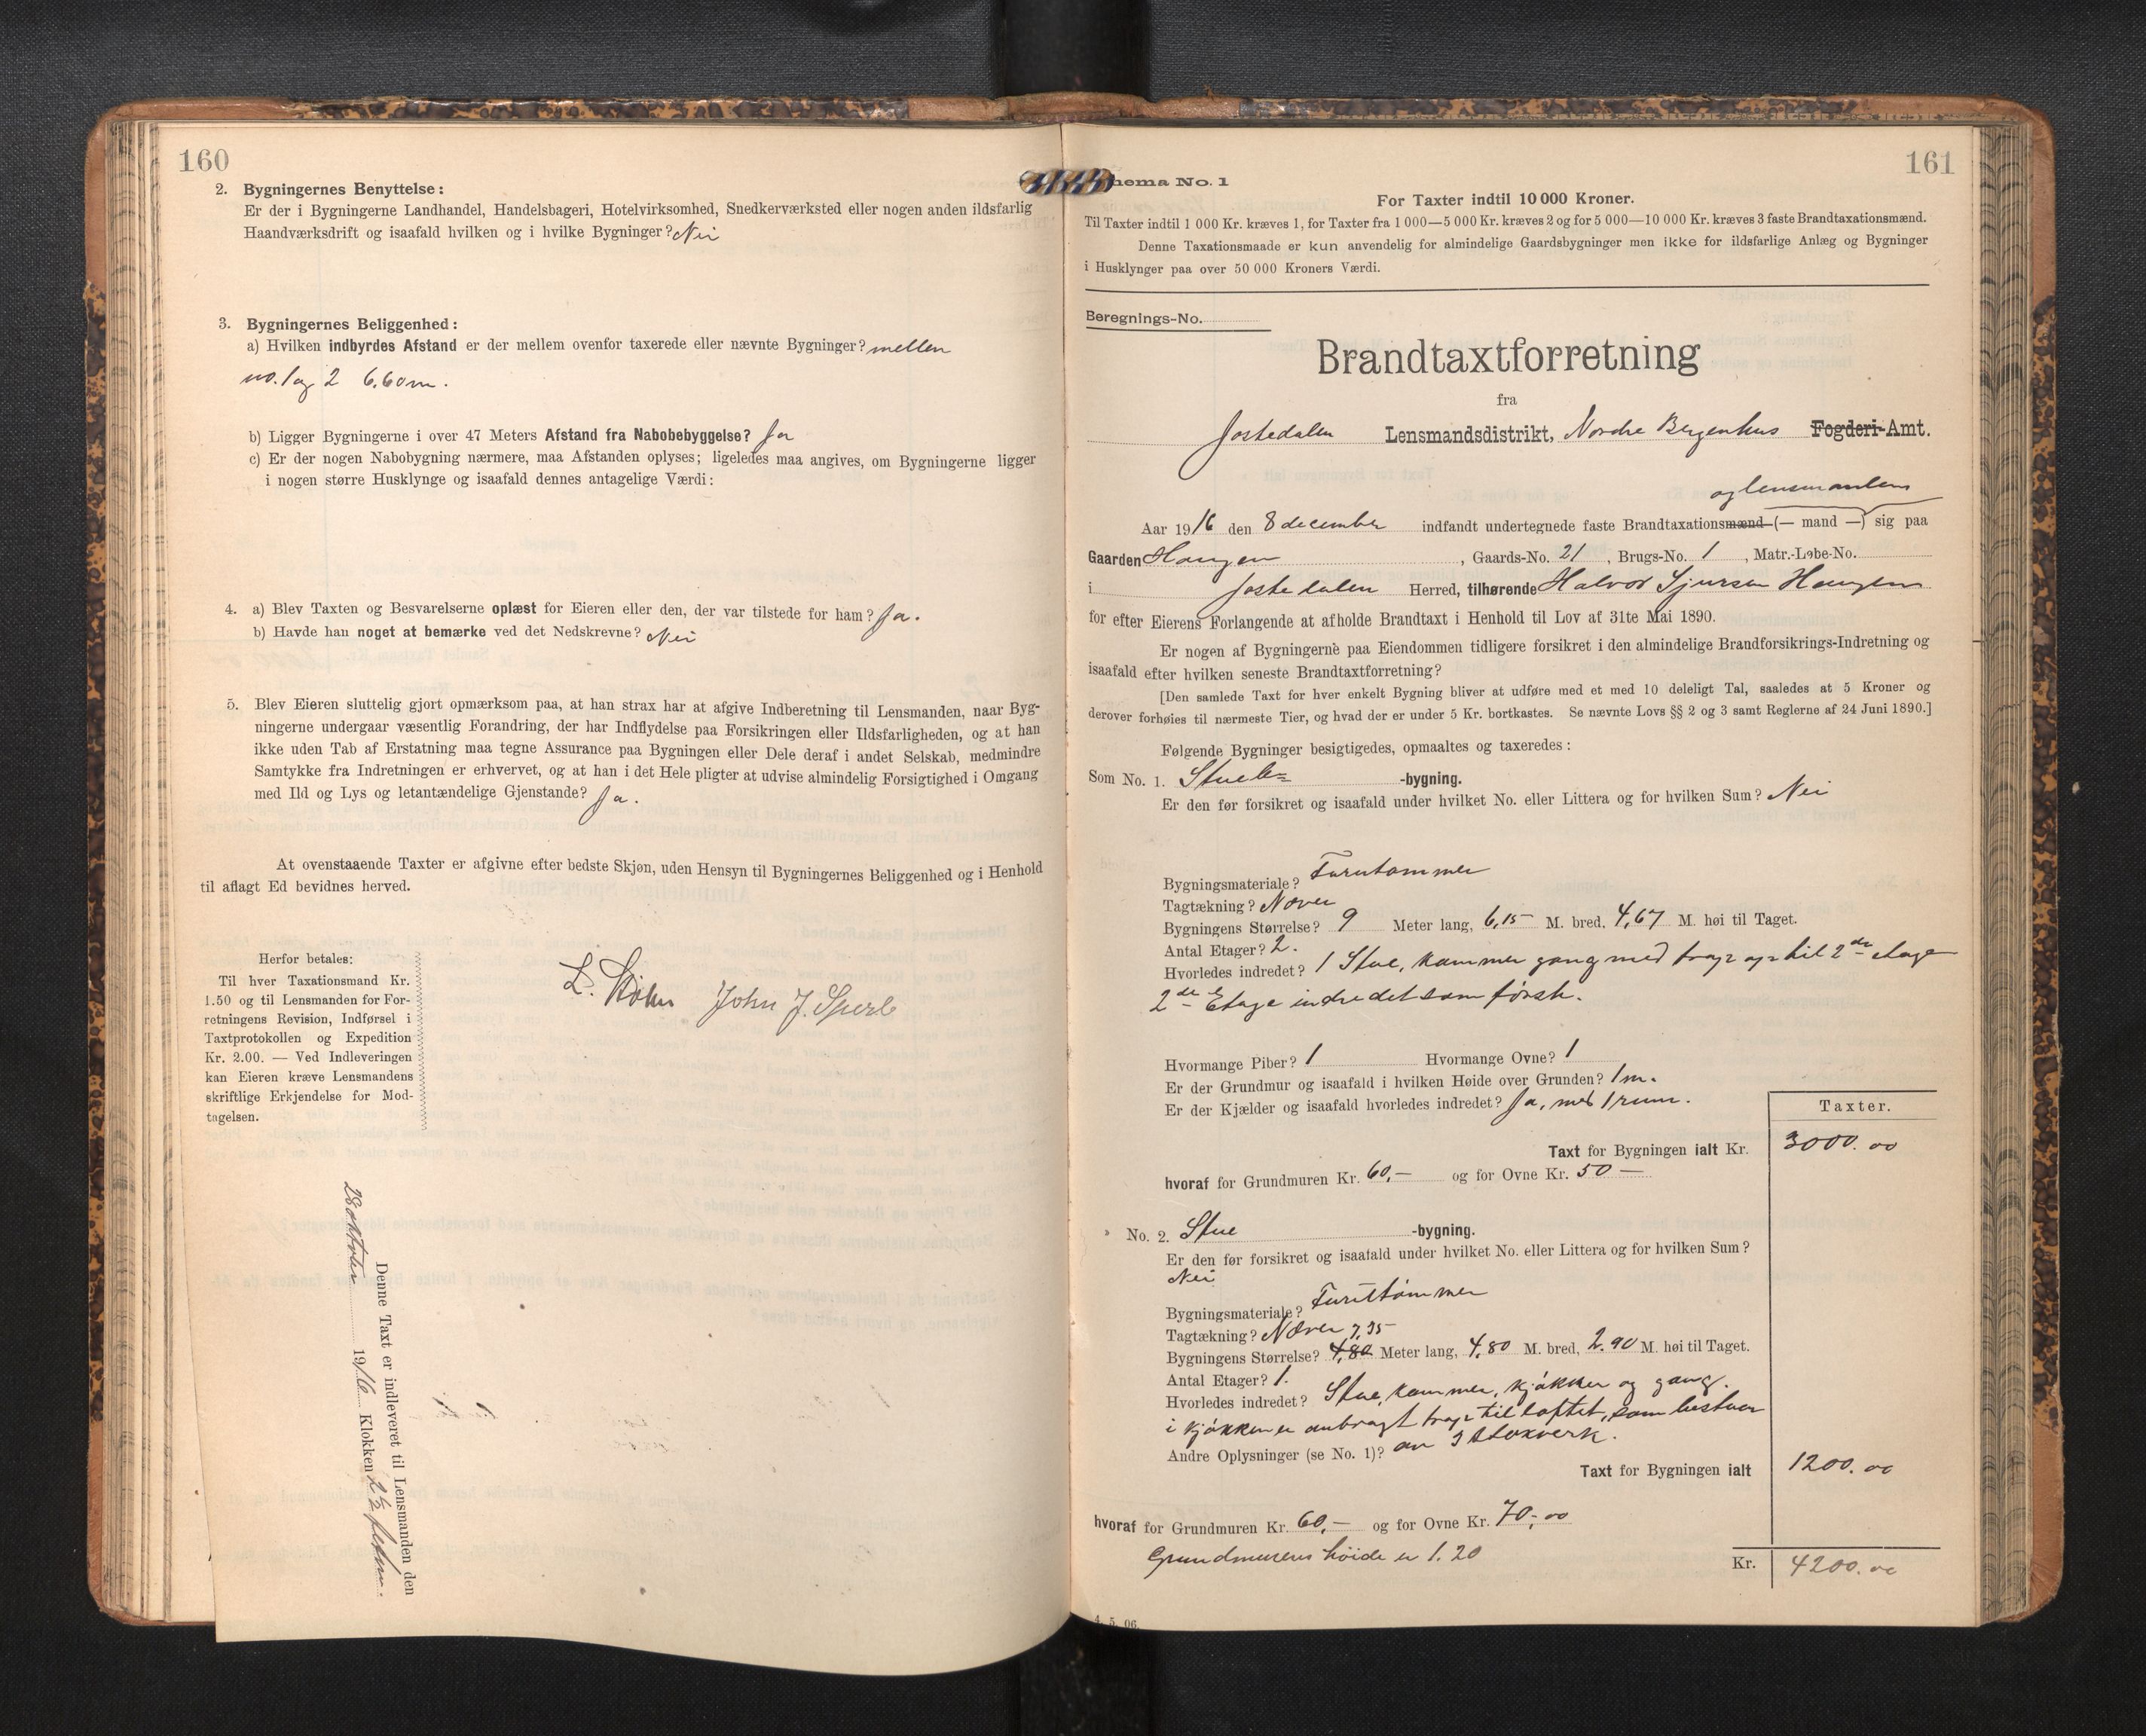 160
2. Bygningernes Benyttelse:
Er der i Bygningerne Landhandel, Handelsbageri, Hotelvirksomhed, Snedkerværksted eller nogen anden ildsfarlig
Haandværksdrift og isaafald hvilken og i hvilke Bygninger? Nei
3. Bygningernes Beliggenhed:
a) Hvilken indbyrdes Afstand er der mellem ovenfor taxerede eller nævnte Bygninger? mellem
no. 1 og 2 6,60 m.
b) Ligger Bygningerne i over 47 Meters Afstand fra Nabobebyggelse? Ja
c) Er der nogen Nabobygning nærmere, maa Afstanden oplyses; ligeledes maa angives, om Bygningerne ligger
i nogen større Husklynge og isaafald dennes antagelige Værdi:
4. a) Blev Taxten og Besvarelserne oplæst for Eieren eller den, der var tilstede for ham? Ja.
b) Havde han noget at bemærke ved det Nedskrevne? Nei
5. Blev Eieren sluttelig gjort opmærksom paa, at han strax har at afgive Indberetning til Lensmanden, naar Byg-
ningerne undergaar væsentlig Forandring, der har Indflydelse paa Forsikringen eller Ildsfarligheden, og at han
ikke uden Tab af Erstatning maa tegne Assurance paa Bygningen eller Dele deraf i andet Selskab, medmindre
Samtykke fra Indretningen er erhvervet, og at han i det Hele pligter at udvise almindelig Forsigtighed i Omgang
med Ild og Lys og letantændelige Gjenstande? Ja.
At ovenstaaende Taxter er afgivne efter bedste Skjøn, uden Hensyn til Bygningernes Beliggenhed og i Henhold
til aflagt Ed bevidnes herved.
Herfor betales:
Til hver Taxationsmand Kr.
1.50 og til Lensmanden for For-
retningens Revision, Indførsel i
Taxtprotokollen og Expedition
Kr. 2.00. — Ved Indleveringen
kan Eieren kræve Lensmandens
skriftlige Erkjendelse for Mod-
tagelsen.
John J. Sperle
Denne Taxt er indleveret til Lensmanden den
28 oktober 1916 Klokken 2½
161
hema No. 1
For Taxter indtil 10 000 Kroner.
Til Taxter indtil 1 000 Kr. kræves 1, for Taxter fra 1 000—5 000 Kr. kræves 2 og for 5 000—10 000 Kr. kræves 3 faste Brandtaxationsmænd.
Denne Taxationsmaade er kun anvendelig for almindelige Gaardsbygninger men ikke for ildsfarlige Anlæg og Bygninger
i Husklynger paa over 50 000 Kroners Værdi.
Beregnings-No.
Brandtaxtforretning
fra
Jostedalen Lensmandsdistrikt, Nordre Bergenhus Fogderi-Amt.
og lensmanden
Aar 1916 den 8 december indfandt undertegnede faste Brandtaxationsmænd (— mand —) sig paa
Gaarden Haugen, Gaards-No. 21, Brugs-No. 1, Matr.-Løbe-No.
i Jostedalen Herred, tilhørende Halvor Sjursen Haugen
for efter Eierens Forlangende at afholde Brandtaxt i Henhold til Lov af 31te Mai 1890.
Er nogen af Bygningerne paa Eiendommen tidligere forsikret i den almindelige Brandforsikrings-Indretning og
isaafald efter hvilken seneste Brandtaxtforretning?
[Den samlede Taxt for hver enkelt Bygning bliver at udføre med et med 10 deleligt Tal, saaledes at 5 Kroner og
derover forhøies til nærmeste Tier, og hvad der er under 5 Kr. bortkastes. Se nævnte Lovs §§ 2 og 3 samt Reglerne af 24 Juni 1890.]
Følgende Bygninger besigtigedes, opmaaltes og taxeredes:
Som No. 1. Stue -bygning.
Er den før forsikret og isaafald under hvilket No. eller Littera og for hvilken Sum? Nei
Bygningsmateriale? Furutømmer
Tagtækning? Næver
Bygningens Størrelse? 9 Meter lang, 6,15 M. bred, 4,67 M. høi til Taget.
Antal Etager? 2.
Hvorledes indredet? 1 Stue, kammer gang med trap op til 2de etage
2de Etage indredet som første.
Hvormange Piber? 1 Hvormange Ovne? 1
Er der Grundmur og isaafald i hvilken Høide over Grunden? 1 m.
Er der Kjælder og isaafald hvorledes indredet? Ja, med 1 rum.
Taxter.
Taxt for Bygningen ialt Kr. 3000.00
hvoraf for Grundmuren Kr. 60,— og for Ovne Kr. 50 —
» No. 2. Stue -bygning.
Er den før forsikret og isaafald under hvilket No. eller Littera og for hvilken Sum?
Nei
Bygningsmateriale? Furutømmer
Tagtækning? Næver 7,35
Bygningens Størrelse? 4,80 Meter lang, 4,80 M. bred, 2.90 M. høi til Taget.
Antal Etager? 1.
Hvorledes indredet? Stue, kammer, kjøkken og gang.
i kjøkken er anbragt trap til loftet, som bestaar
Andre Oplysninger (se No. 1)? av 3 stokverk.
Taxt for Bygningen ialt 1200.00
hvoraf for Grundmuren Kr. 60,— og for Ovne Kr. 70,00
Grundmurens høide er 1.20
Kr. 4200.00
4. 5. 06.